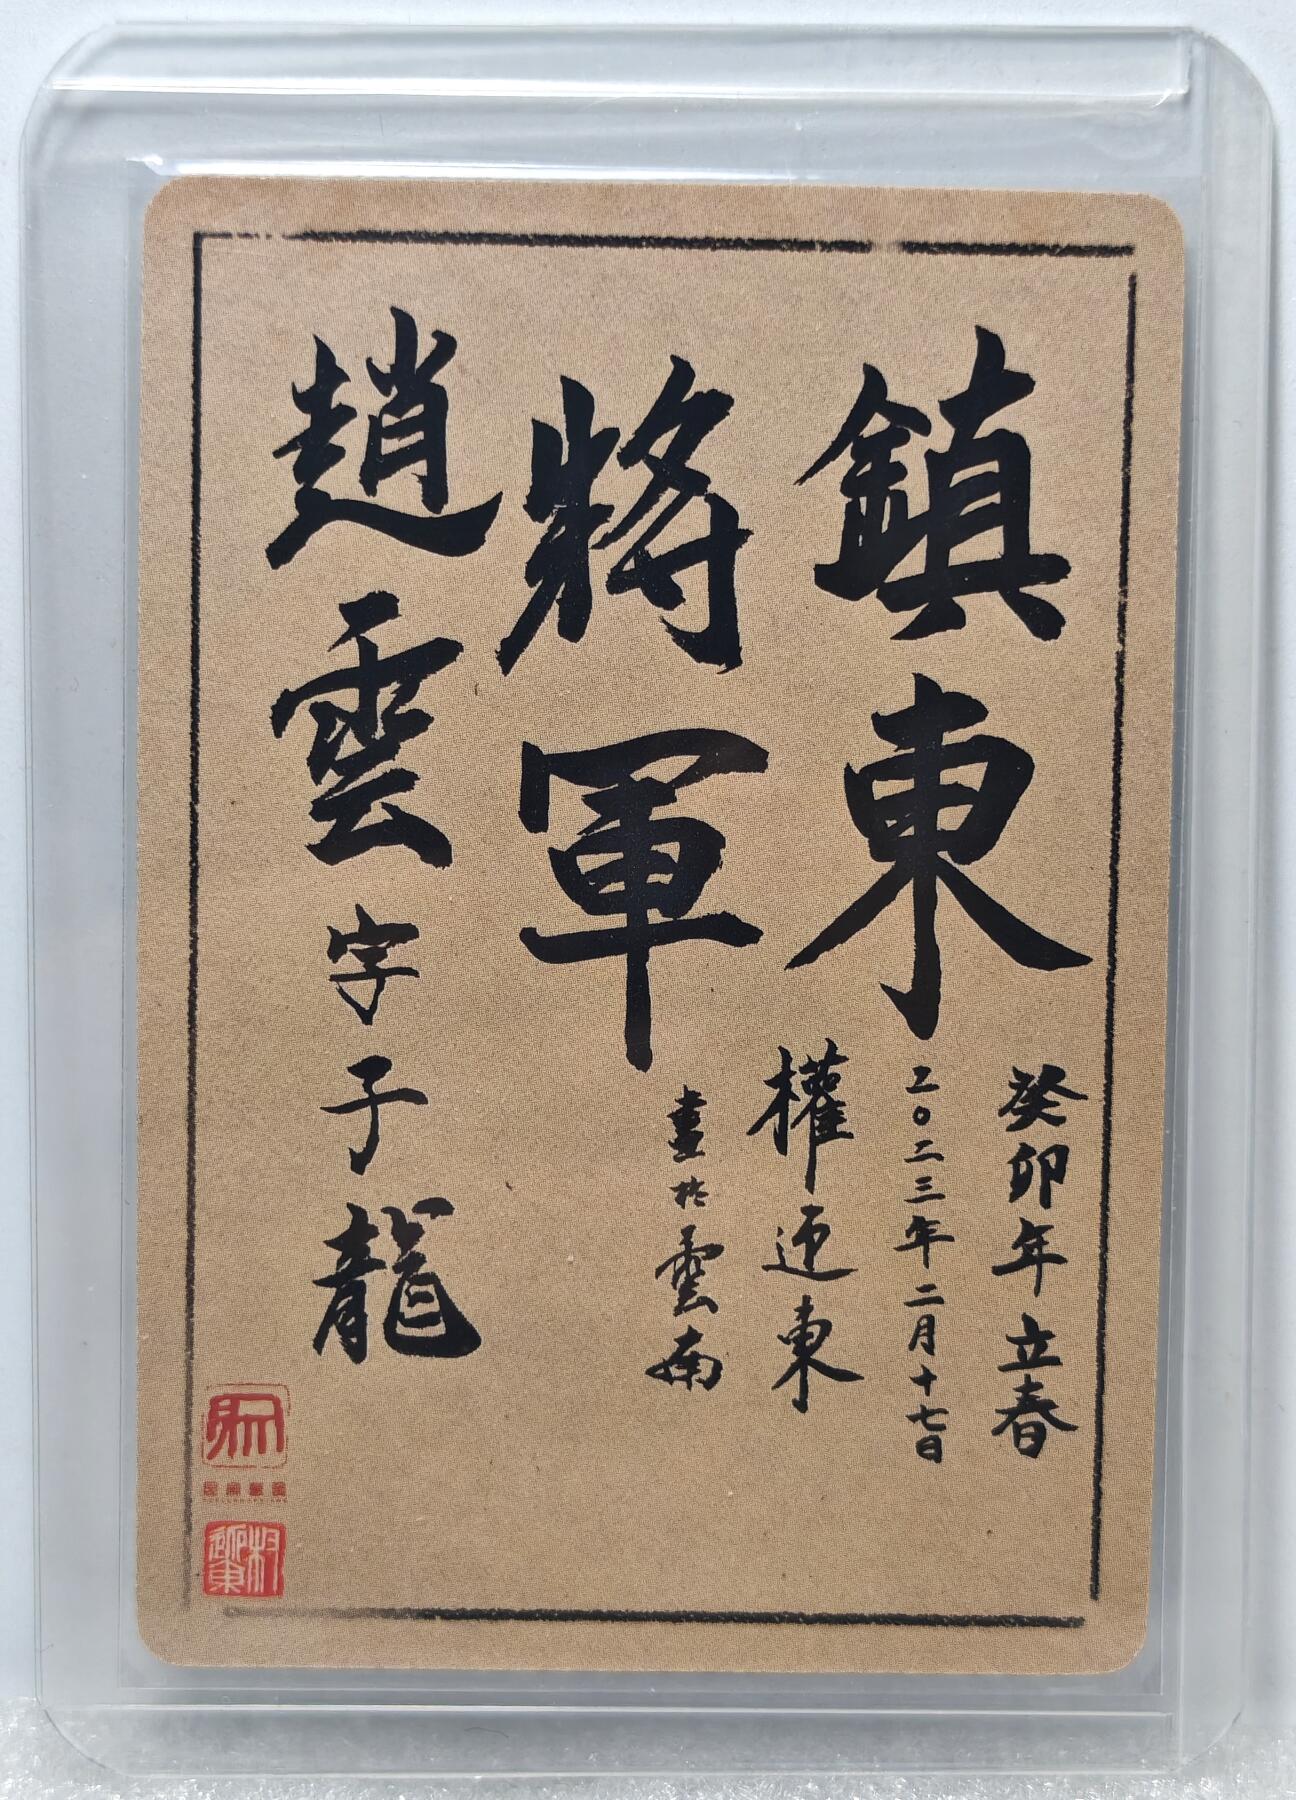 鎮東
將軍
趙雲字子龍
癸卯年立春
二〇二三年二月十七日
權迎東
畫於雲南